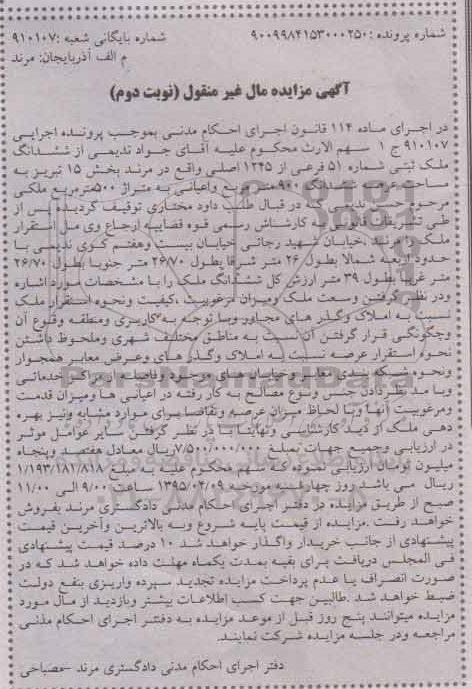 شماره پرونده :۹۰۰۹۹۸۴۱۵۳۰۰۰۲۵۰ شماره بایگانی شعبه :۹۱۰۱۰۷
م الف آذربایجان: مرند
آگهی مزایده مال غیر منقول (نوبت دوم)
در اجرای ماده ۱۱۴ قانون اجرای احکام مدنی بموجب پرونده اجرایی
۹۱۰۱۰۷ ج ۱ سهم الارث محکوم علیه آقای جواد ندیمی از ششدانگ
ملک ثبتی شماره ۵۱ فرعی از ۱۲۴۵ اصلی واقع در مرند بخش ۱۵ تبریز به
مساحت عرصه ششدانگ ۹۰۰ متر مربع واعیانی به متراژ ۵۰۰مترمربع ملکی
مرحوم ندیمی که در قبال طلب داود مختاری توقیف گردیده پس از
طی تشریفات قانونی به کارشناش رسمی قوه قضاییه ارجاع وی محل استقرار
ملک مرند ،خیابان شهید رجائی خیابان بیست وهفتم کوی ندیمی با
حدود اربعه شمالا بطول ۲۶ متر شرقا بطول ۲۶/۷۰ متر جنوبا بطول ۲۶/۷۰
متر غربا بطول ۳۹ متر ارزش کل ششدانگ ملک را با مشخصات مورد اشاره
ودر نظر گرفتن وسعت ملک ومیزان مرغوبیت ،کیفیت ونحوه استقرار ملک
نسبت به املاک وگذر های مجاور وبا توجه به کاربری ومنطقه وقوع آن
وچگونگی قرار گرفتن آن نسبت به مناطق مختلف شهری وملحوظ داشتن
نحوه استقرار عرصه نسبت به املاک وگذر های وعرض معابر همجوار
ونحوه شبکه بندی معابر وخیابان های موجود وفاصله تا مراکز خدماتی
وبا مد نظر دادن جنس ونوع مصالح به کار رفته در اعیانی ها ومیزان قدمت
ومرغوبیت آنها وبا لحاظ میزان عرضه وتقاضا برای موارد مشابه ونیز بهره
دهی ملک از دید کارشناسی ونهایتا با در نظر گرفتن سایر عوامل موثر
در ارزیابی وجمیع جهات بمبلغ ۷/۵۰۰/۰۰۰/۰۰۰ریال معادل هفتصد وپنجاه
میلیون تومان ارزیابی نموده که سهم محکوم علیه به مبلغ ۱/۱۹۳/۱۸۱/۸۱۸
ریال می باشد روز چهارشنبه مورخه ۱۳۹۵/۰۴/۰۹ ساعت ۹/۰۰ الی ۱۱/۰۰
صبح از طریق مزایده در دفتر اجرای احکام مدنی دادگستری مرند بفروش
خواهد رفت .مزایده از قیمت پایه شروع وبه بالاترین وآخرین قیمت
پیشنهادی از جانب خریدار واگذار خواهد شد ۱۰ درصد قیمت پیشنهادی
فی المجلس دریافت برای بقیه بمدت یکماه مهلت داده خواهد شد که در
صورت انصراف یا عدم پرداخت مزایده تجدید سپرده واریزی بنفع دولت
ضبط خواهد شد .طالبین جهت کسب اطلاعات بیشتر وبازدید از مال مورد
مزایده میتوانند پنج روز قبل از موعد مزایده به دفتر اجرای احکام مدنی
مراجعه ودر جلسه مزایده شرکت نمایند.
دفتر اجرای احکام مدنی دادگستری مرند –مصباحی
ParsNamadData